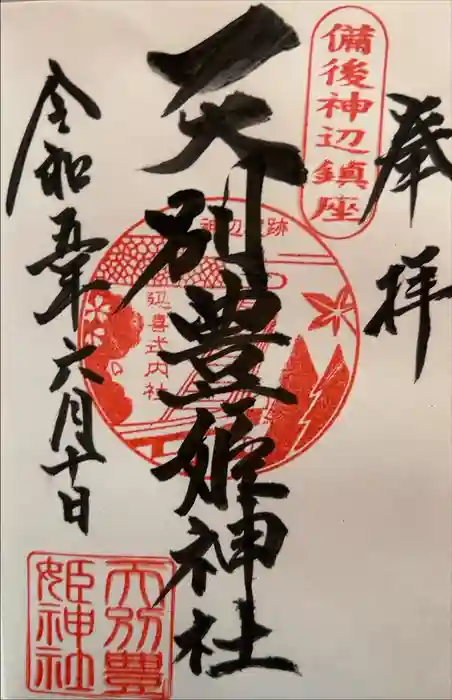 奉拝
備後神辺鎮座
天別豊姫神社
神辺城跡
延喜式内社
令和五年六月十日
天別豊
姫神社